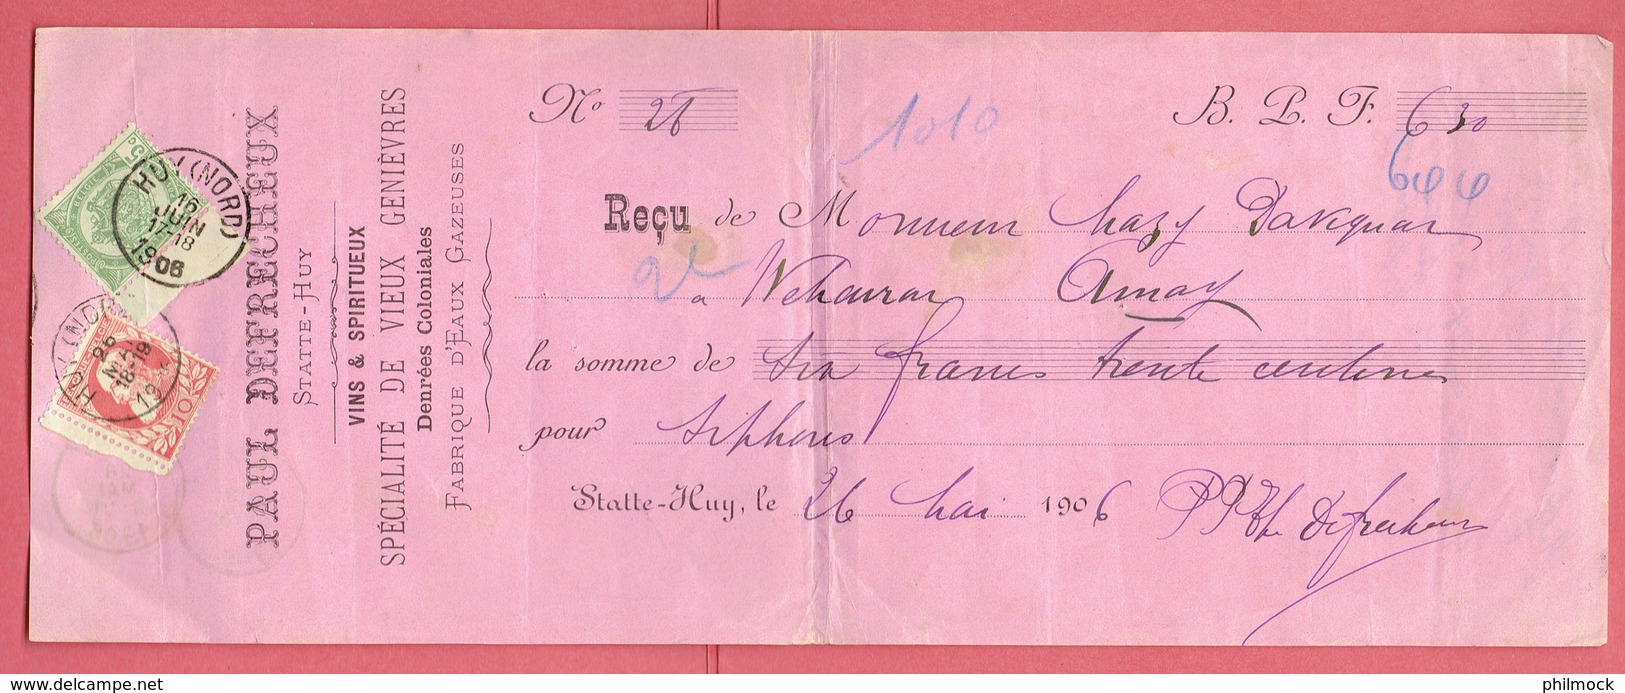 PAUL DEFRECHEUX
STATTE-HUY
VINS & SPIRITUEUX
SPÉCIALITÉ DE VIEUX GENIÈVRES
Denrées Coloniales
FABRIQUE D'EAUX GAZEUSES
HUY (NORD)
16
JUIN
17-18
1906
5
HUY (NORD)
26
MAI
18-19
10
No 26
B. P. F. 6 30
1010
Reçu de Monsieur
à Amay
la somme de six francs trente centimes
pour siphons
Statte-Huy, le 26 Mai 1906
Defrecheux
philmock
www.delcampe.net